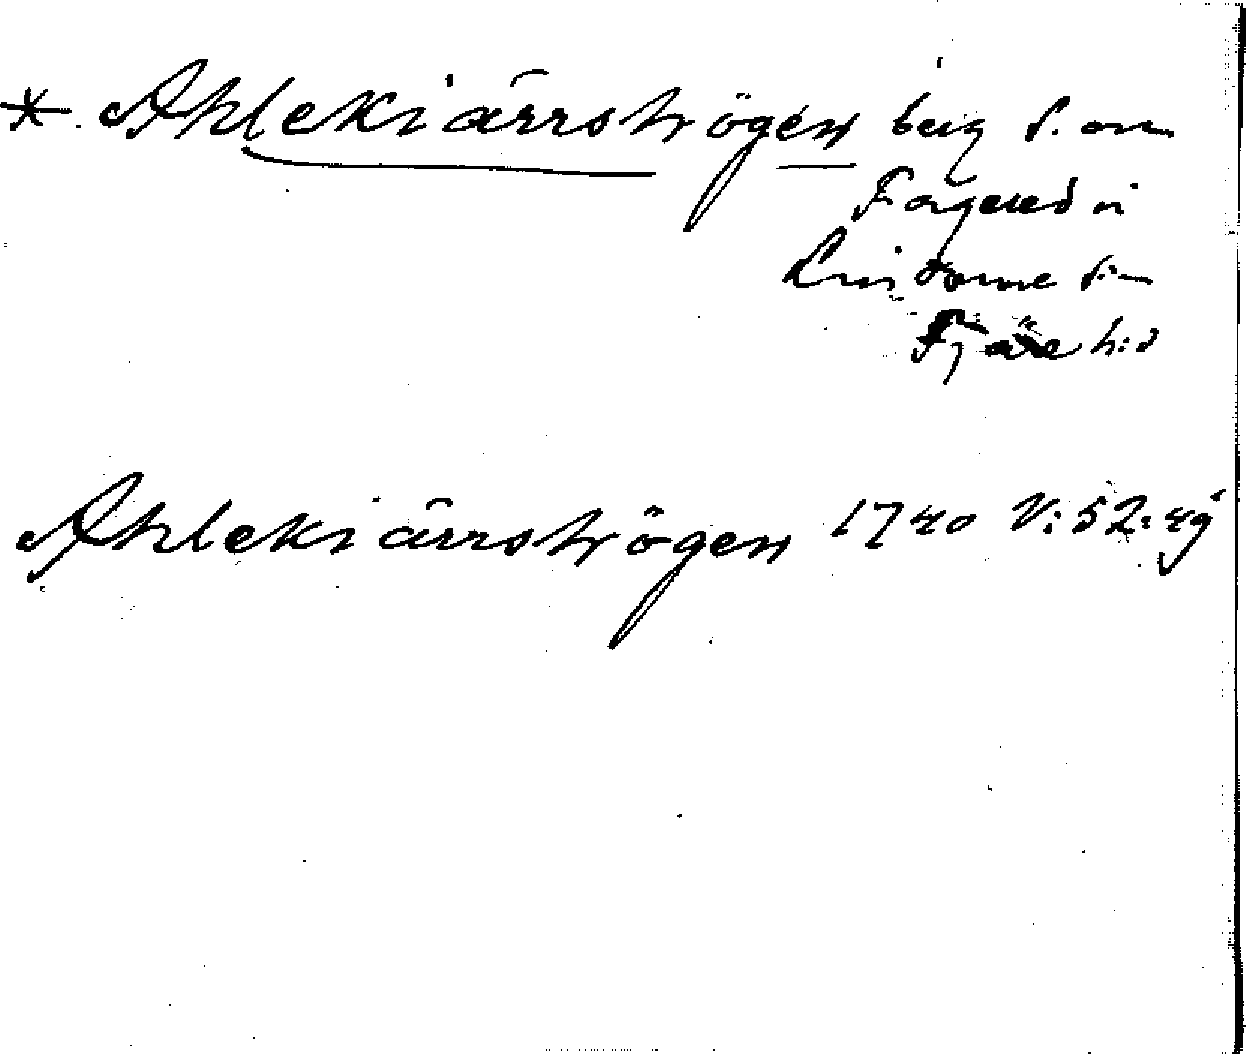 * Ahlekiärrshögen berg S. om
Fagered i
Lindome sn
Fjäre hd
Ahlekiärrshögen 1740 V: 52: 49